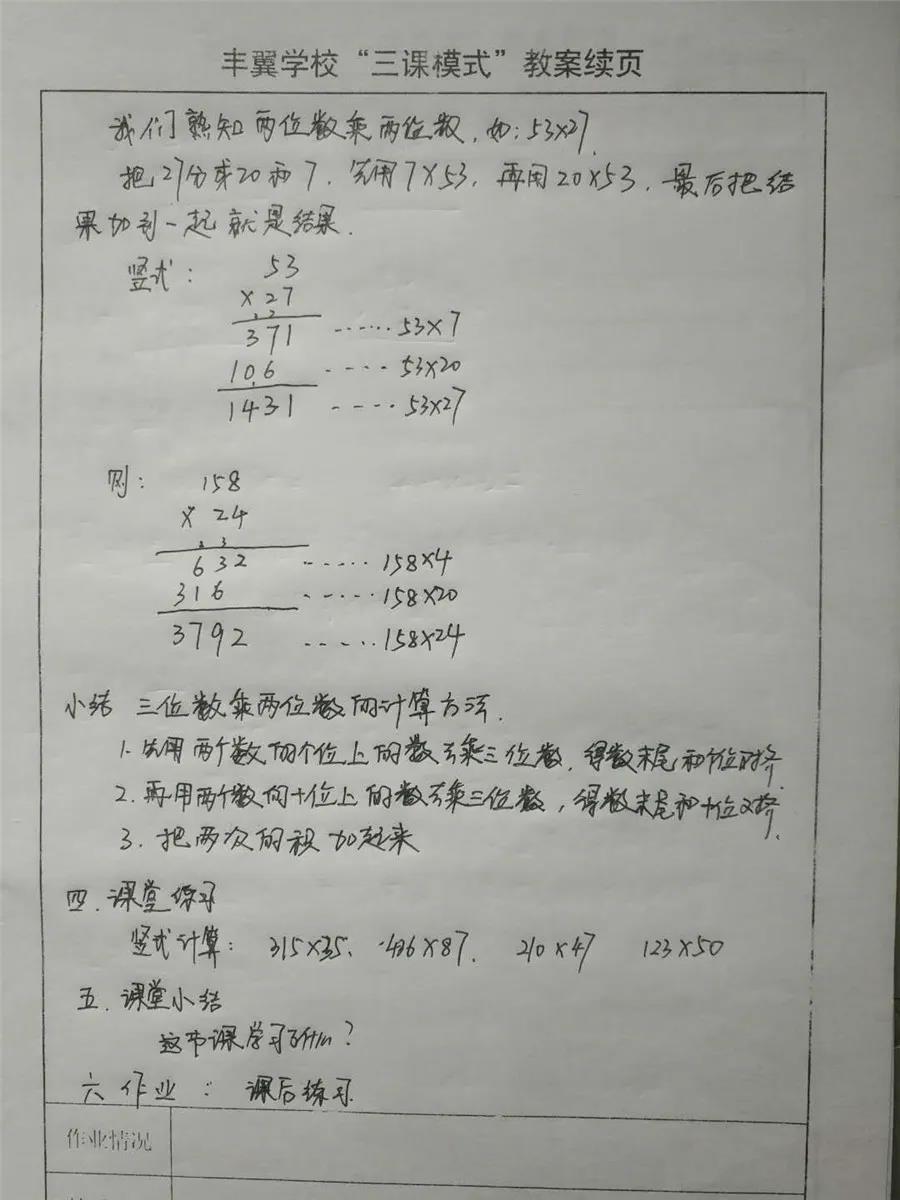 丰翼学校“三课模式”教案续页
我们熟知两位数乘两位数,如:53×27.
把27分成20和7,先用7×53,再用20×53,最后把结
果加到一起就是结果.
竖式: 53
× 27
371 ······ 53×7
106 ···· 53×20
1431 ···· 53×27
则: 158
× 24
2 3
632 ······ 158×4
316 ······ 158×20
3792 ······ 158×24
小结 三位数乘两位数的计算方法.
1. 先用两个数的个位上的数去乘三位数,得数末尾和个位对齐
2. 再用两个数的十位上的数去乘三位数,得数末尾和十位对齐.
3. 把两次的积加起来
四.课堂练习
竖式计算: 315×35、 436×87、 210×47 123×50
五.课堂小结
这节课学习了什么?
六 作业 : 课后练习.
作业情况